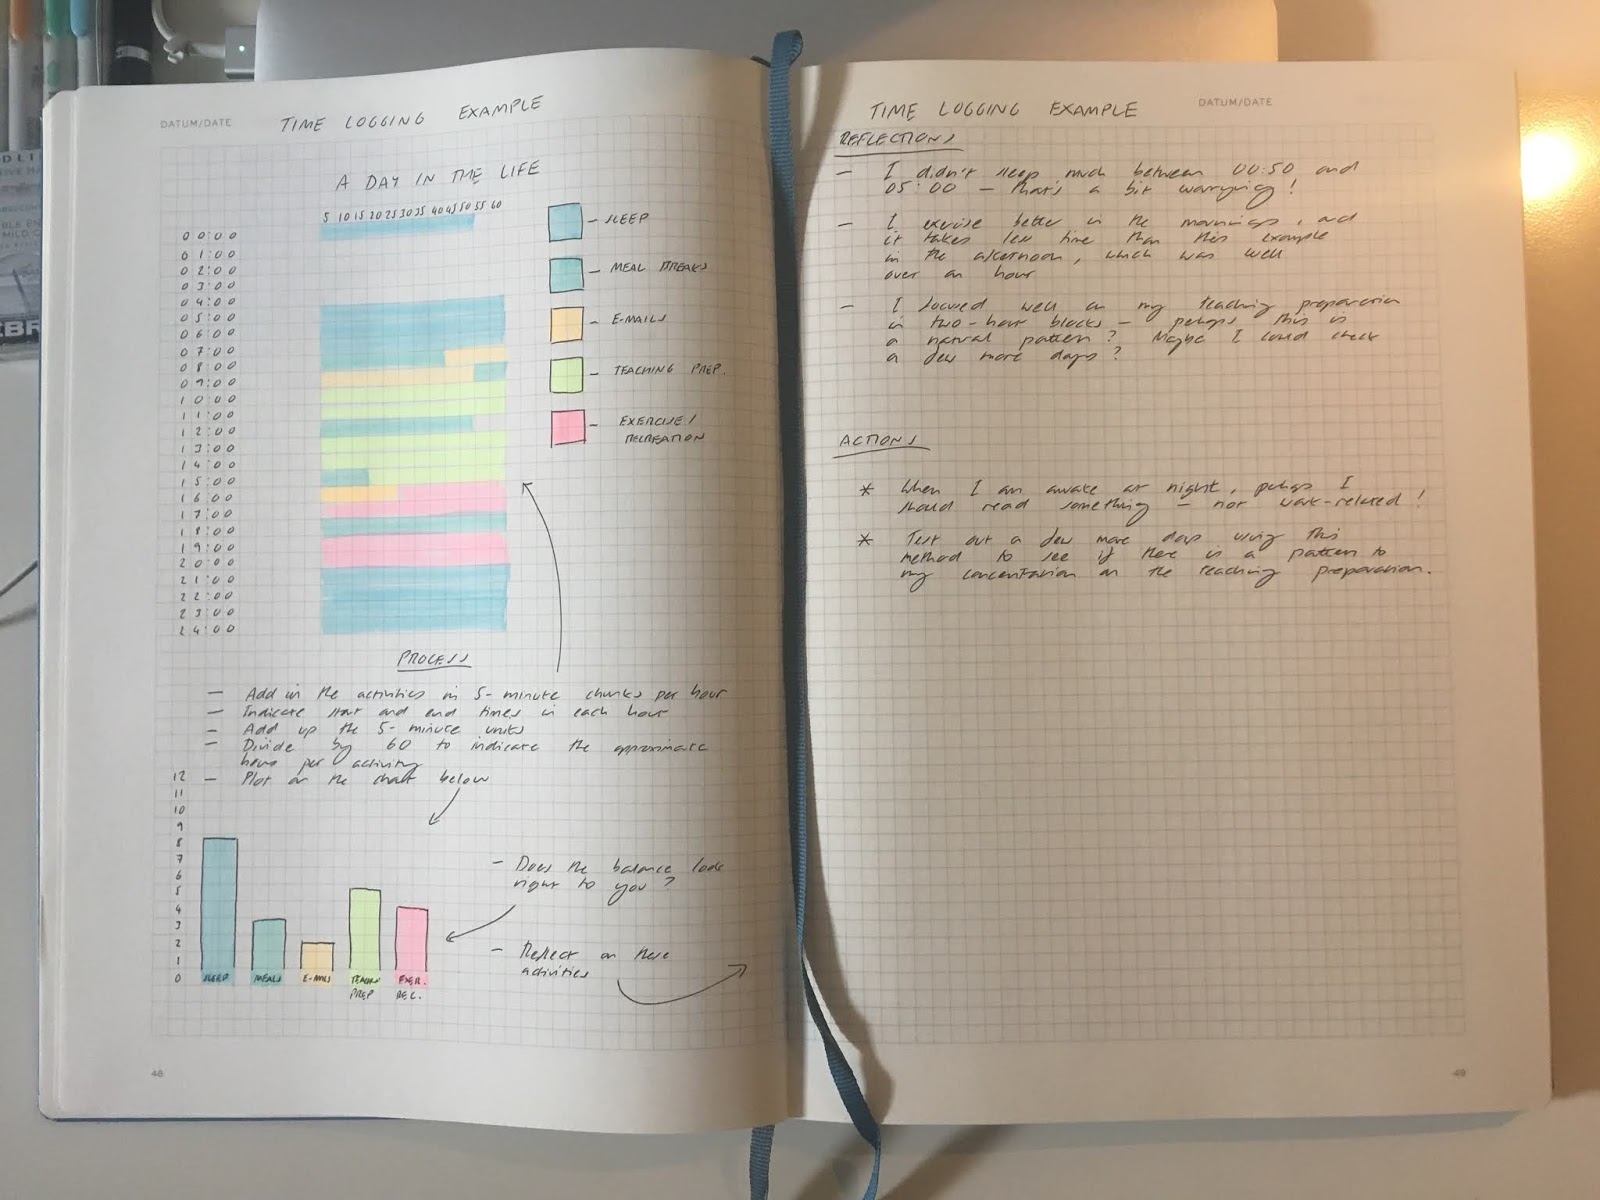 DATUM/DATE
TIME LOGGING EXAMPLE
A DAY IN THE LIFE
5 10 15 20 25 30 35 40 45 50 55 60
00:00
01:00
02:00
03:00
04:00
05:00
06:00
07:00
08:00
09:00
10:00
11:00
12:00
13:00
14:00
15:00
16:00
17:00
18:00
19:00
20:00
21:00
22:00
23:00
24:00
- SLEEP
- MEAL BREAKS
- E-MAILS
- TEACHING PREP.
- EXERCISE/
RECREATION
PROCESS
- Add in the activities in 5-minute chunks per hour
- Indicate start and end times in each hour
- Add up the 5-minute units
- Divide by 60 to indicate the approximate
hours per activity
- Plot on the chart below
12
11
10
9
8
7
6
5
4
3
2
1
0
SLEEP
MEALS
E-MAILS
TEACHING
PREP
EXER.
REC.
- Does the balance look
right to you?
- Reflect on these
activities
48
TIME LOGGING EXAMPLE
DATUM/DATE
REFLECTIONS
- I didn't sleep much between 00:50 and
05:00 - that's a bit worrying!
- I exercise better in the mornings, and
it takes less time than this example
in the afternoon, which was well
over an hour
- I focused well on my teaching preparation
in two-hour blocks - perhaps this is
a natural pattern? Maybe I could check
a few more days?
ACTIONS
* When I am awake at night, perhaps I
should read something - not work-related!
* Test out a few more days using this
method to see if there is a pattern to
my concentration on the teaching preparation.
49